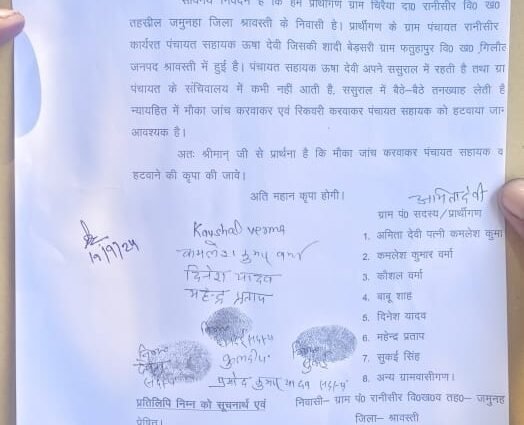 सविनय निवेदन है कि हम प्रार्थीगण ग्राम चिरैया दा० रानीसीर वि० ख०
तहसील जमुनहा जिला श्रावस्ती के निवासी है। प्रार्थीगण के ग्राम पंचायत रानीसीर
कार्यरत पंचायत सहायक ऊषा देवी जिसकी शादी बेड़सरी ग्राम फतुहापुर वि० ख० गिलौत
जनपद श्रावस्ती में हुई है। पंचायत सहायक ऊषा देवी अपने ससुराल में रहती है तथा ग्रा
पंचायत के सचिवालय में कभी नहीं आती है, ससुराल में बैठे-बैठे तनख्वाह लेती है
न्यायहित में मौका जांच करवाकर एवं रिकवरी करवाकर पंचायत सहायक को हटवाया जान
आवश्यक है।
अतः श्रीमान् जी से प्रार्थना है कि मौका जांच करवाकर पंचायत सहायक व
हटवाने की कृपा की जावे।
अति महान कृपा होगी।
अमितादेवी
ग्राम पं० सदस्य/प्रार्थीगण
19/9/24
Kaushal verma
कमलेश कुमार वर्मा
दिनेश यादव
महेन्द्र प्रताप
1. अमिता देवी पत्नी कमलेश कुमा
2. कमलेश कुमार वर्मा
3. कौशल वर्मा
4. बाबू शाह
5. दिनेश यादव
6. महेन्द्र प्रताप
7. सुकई सिंह
8. अन्य ग्रामवासीगण।
कुलदीप
प्रमोद कुमार यादव
प्रतिलिपि निम्न को सूचनार्थ एवं
प्रेषित।
निवासी- ग्राम पं० रानीसीर वि०ख०व तह०- जमुनह
जिला- श्रावस्ती